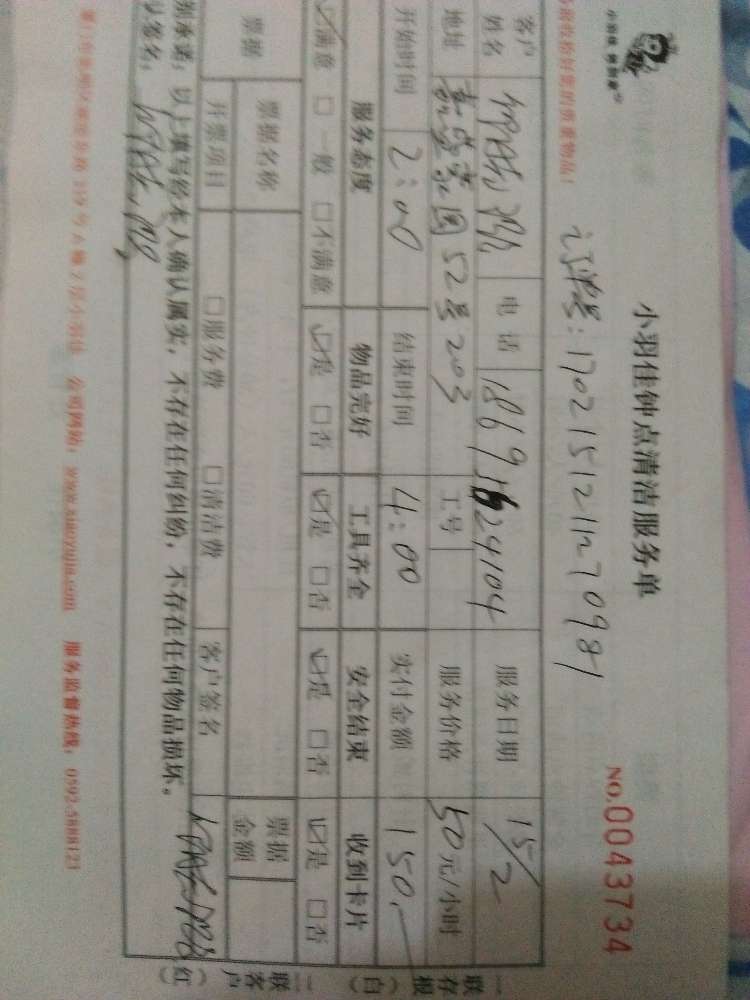 小羽佳钟点清洁服务单
NO.0043734
订单号: 1702151211270981
客户姓名 电话 服务日期 15/2
地址 52号203 工号 服务价格 50元/小时
开始时间 2:00 结束时间 4:00 实付金额 150.
服务态度 物品完好 工具齐全 安全结束 收到卡片
☑满意 □一般 □不满意 ☑是 □否 ☑是 □否 ☑是 □否 ☑是 □否
票据 票据名称 票据金额
开票项目 □服务费 □清洁费 客户签名
以上填写经本人确认属实，不存在任何纠纷，不存在任何物品损坏。
签名：
公司网站： 服务监督热线：0592-5888121
一联存根（白） 二联客户（红）